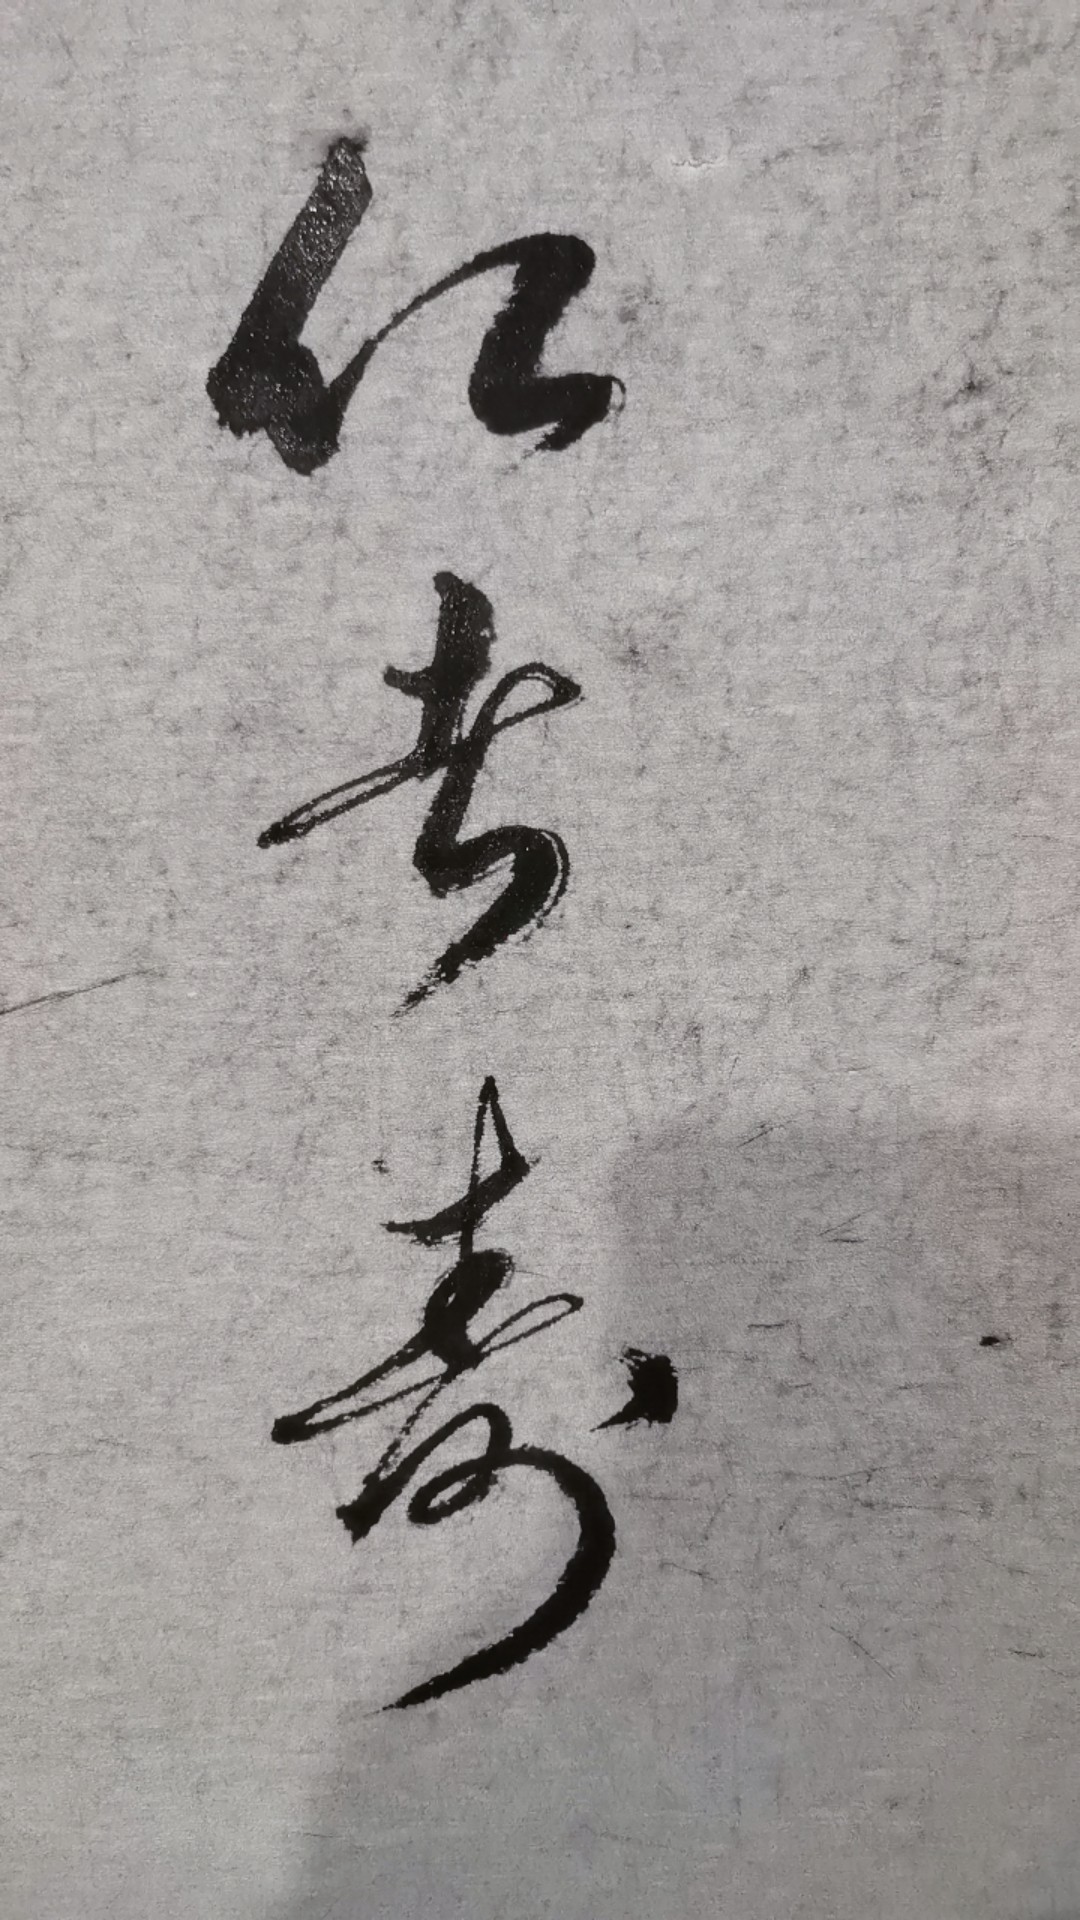 仁者寿